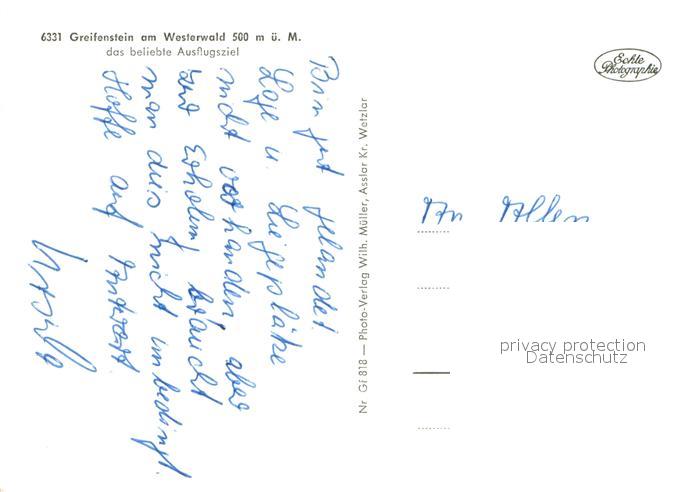 6331 Greifenstein am Westerwald 500 m ü. M.
das beliebte Ausflugsziel
Echte
Photographie
Bin gut gelandet.
Lage u. Liegeplätze
nicht vorhanden aber
zur Erholung braucht
man dies nicht unbedingt.
Hoffe auf Antwort
Ursula
Nr. Gf 818 — Photo-Verlag Wilh. Müller, Asslar Kr. Wetzlar
An Allen
privacy protection
Datenschutz